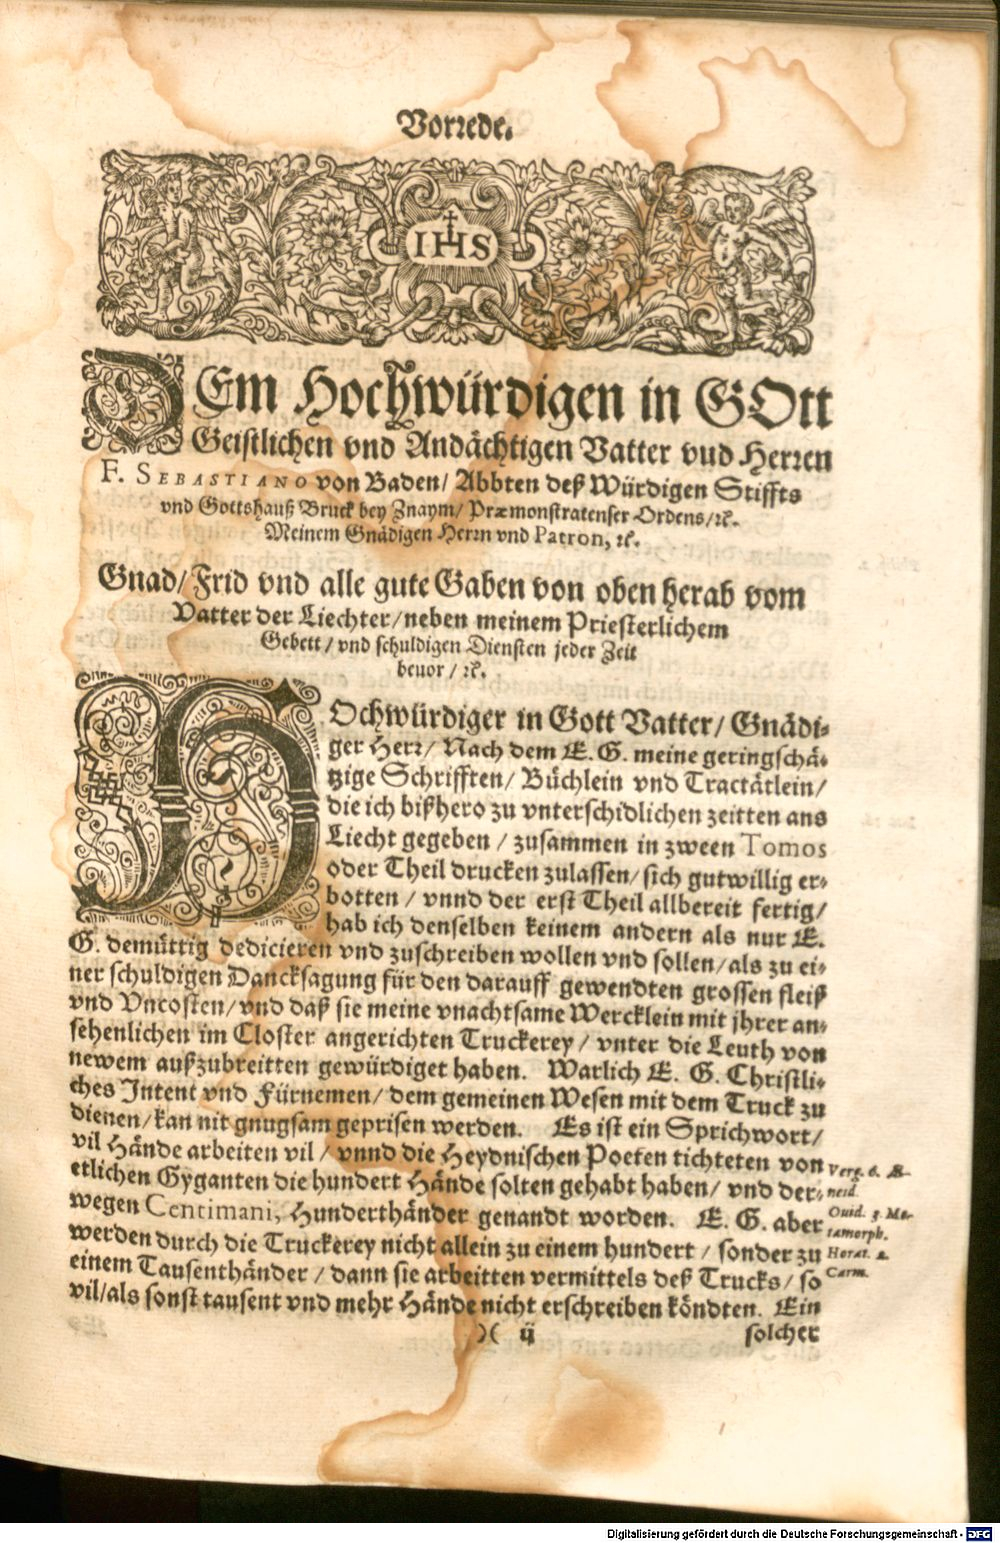 Vorrede.
IHS
DEm Hochwürdigen in GOtt
Geistlichen vnd Andächtigen Vatter vnd Herren
F. SEBASTIANO von Baden/ Abbten deß Würdigen Stiffts
vnd Gottshauß Bruck bey Znaym/ Præmonstratenser Ordens/ꝛc.
Meinem Gnädigen Herrn vnd Patron, ꝛc.
Gnad/ Frid vnd alle gute Gaben von oben herab vom
Vatter der Liechter/neben meinem Priesterlichem
Gebett/ vnd schuldigen Diensten jeder Zeit
beuor/ ꝛc.
HOchwürdiger in Gott Vatter/ Gnädi-
ger Herr/ Nach dem E. G. meine geringschä-
tzige Schrifften/ Büchlein vnd Tractätlein/
die ich bißhero zu vnterschidlichen zeitten ans
Liecht gegeben/ zusammen in zween Tomos
oder Theil drucken zulassen/ sich gutwillig er-
botten/ vnnd der erst Theil allbereit fertig/
hab ich denselben keinem andern als nur E.
G. demüttig dedicieren vnd zuschreiben wollen vnd sollen/ als zu ei-
ner schuldigen Dancksagung für den darauff gewendten grossen fleiß
vnd Vncosten/ vnd daß sie meine vnachtsame Wercklein mit jhrer an-
sehenlichen im Closter angerichten Truckerey/ vnter die Leuth von
newem außzubreitten gewürdiget haben. Warlich E. G. Christli-
ches Intent vnd Fürnemen/ dem gemeinen Wesen mit dem Truck zu
dienen/ kan nit gnugsam geprisen werden. Es ist ein Sprichwort/
vil Hände arbeiten vil/ vnnd die Heydnischen Poeten tichteten von
etlichen Gyganten die hundert Hände solten gehabt haben/ vnd der-
wegen Centimani, Hunderthänder genandt worden. E. G. aber
werden durch die Truckerey nicht allein zu einem hundert/ sonder zu
einem Tausenthänder/ dann sie arbeitten vermittels deß Trucks/ so
vil/als sonst tausent vnd mehr Hände nicht erschreiben köndten. Ein
Verg. 6. Æ-
neid.
Ouid. 3 Me-
tamorph.
Horat. 2.
Carm.
)( ij
solcher
Digitalisierung gefördert durch die Deutsche Forschungsgemeinschaft - DFG